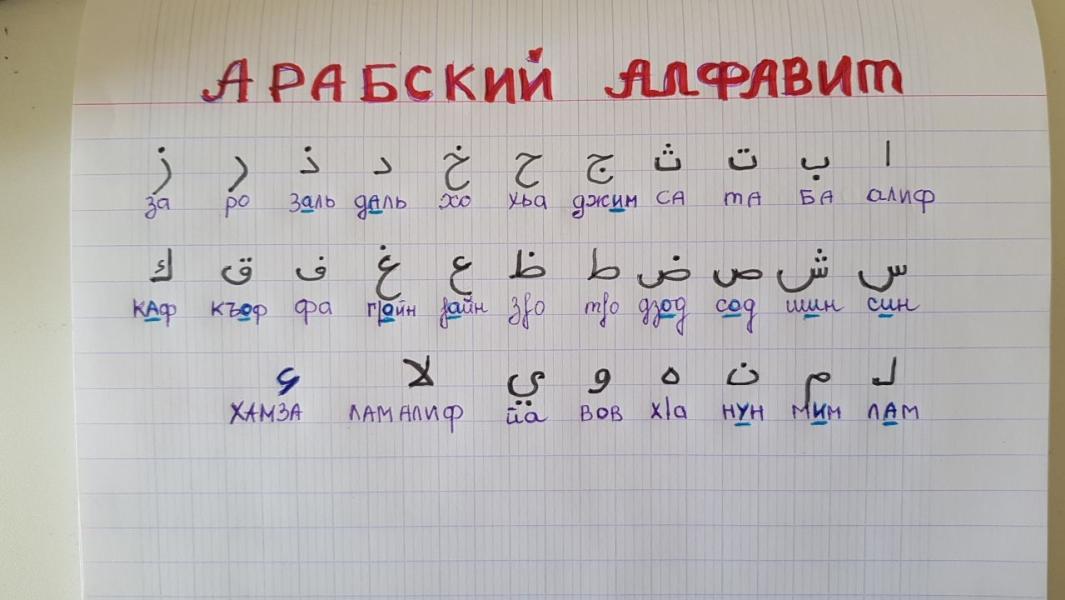 АРАБСКИЙ АЛФАВИТ
ا ب ت ث ج ح خ د ذ ر ز
за ро заль даль хо хьа джим СА тА БА алиф
س ش ص ض ط ظ ع غ ف ق ك
КАф КЪоф фа гӏойн ӏайн зӏо тӏо дзод сод шин син
ل م ن ه و ي لا ء
ХАМЗА ЛАМАЛИФ йа ВОВ хӏа НУН МИМ ЛАМ